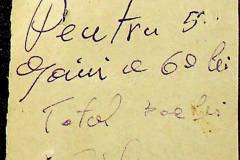 Pentru 5
găini a 60 lei
Total 300 lei